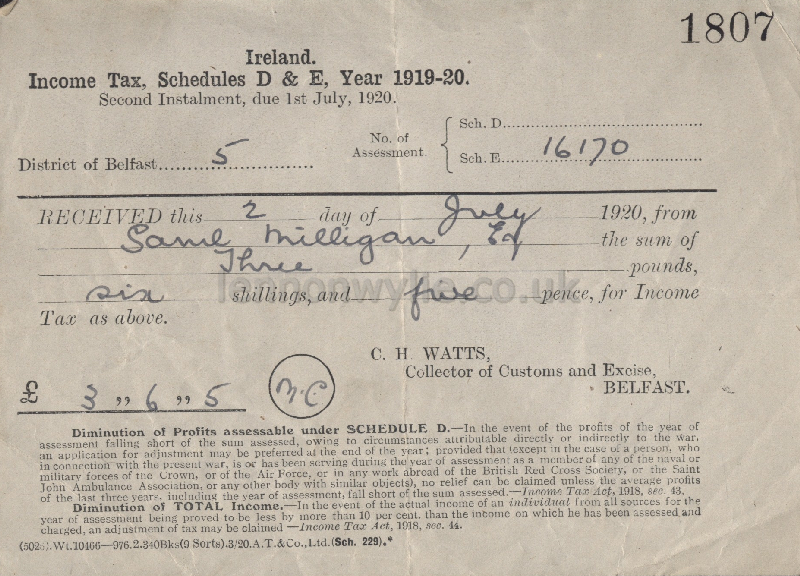 1807
Ireland.
Income Tax, Schedules D & E, Year 1919-20.
Second Instalment, due 1st July, 1920.
District of Belfast 5
No. of Assessment.
Sch. D.
Sch. E. 16170
RECEIVED this 2 day of July 1920, from
Saml Milligan, Esq the sum of
Three pounds,
six shillings, and five pence, for Income
Tax as above.
lennonwylie.co.uk
C. H. WATTS,
Collector of Customs and Excise,
BELFAST.
£ 3 " 6 " 5
Diminution of Profits assessable under SCHEDULE D.—In the event of the profits of the year of
assessment falling short of the sum assessed, owing to circumstances attributable directly or indirectly to the war,
an application for adjustment may be preferred at the end of the year; provided that (except in the case of a person, who
in connection with the present war, is or has been serving during the year of assessment as a member of any of the naval or
military forces of the Crown, or of the Air Force, or in any work abroad of the British Red Cross Society, or the Saint
John Ambulance Association, or any other body with similar objects), no relief can be claimed unless the average profits
of the last three years, including the year of assessment, fall short of the sum assessed.—Income Tax Act, 1918, sec. 43.
Diminution of TOTAL Income.—In the event of the actual income of an individual from all sources for the
year of assessment being proved to be less by more than 10 per cent. than the income on which he has been assessed and
charged, an adjustment of tax may be claimed—Income Tax Act, 1918, sec. 44.
Wt.10466—976.2.340Bks(9 Sorts).3/20.A.T.&Co.,Ltd.(Sch. 229).*